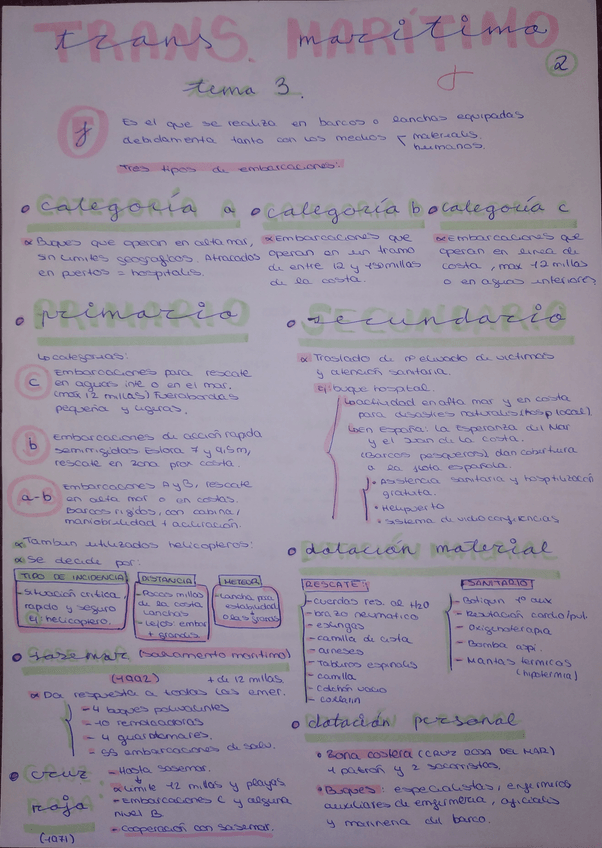 TRANS. MARÍTIMO
trans maritimo
2
tema 3.
Es el que se realiza en barcos o lanchas equipadas
debidamenta tanto con los medios materiales.
humanos.
Tres tipos de embarcaciones:
CATEGORÍA A
• categoría a
Buques que operan en alta mar,
sin límites geograficos. Atracados
en puertos = hospitalis.
• categoría b
Embarcaciones que
operan en un tramo
de entre 12 y 150 millas
de la costa.
• categoría c
Embarcaciones que
operan en linea de
costa, max 12 millas
o en aguas interiores
PRIMARIO
• primario
↳ categorias:
c
Embarcaciones para rescate
en aguas inte o en el mar,
(max 12 millas) fuerabordas
pequeña y ligeras.
b
embarcaciones de acción rapida
semirrigidas Eslora 7 y 9,5m,
rescate en zona prox costa.
a-b
Embarcaciones A y B, rescate
en alta mar o en costas.
Barcos rigidos, con cabina/
maniobrilidad + aceleración.
Tambien utilizados helicopteros:
Se decide por:
TIPO DE INCIDENCIA
- situación critica,
rapido y seguro
ej helicoptero.
DISTANCIA
- Pocas millas
de la costa
lanchas
- Lejos embar
+ grandes.
METEOR
- Lancha para
estabilidad
o las grandes
• sasemar (salvamento maritimo)
(1992) + de 12 millas.
Da respuesta a todas las emer.
- 4 buques polivalentes
- 10 remolcadoras
- 4 guardamares.
- 55 embarcaciones de salv.
CRUZ
ROJA:
• cruz
roja
(1971)
- Hasta sasemar.
Limite 12 millas y playas
- embarcaciones C y alguna
nivel B
- cooperación con sasemar.
SECUNDARIO
• secundario
Traslado de nº elevado de victimas
y atención sanitaria.
ej buque hospital.
↳ actividad en alta mar y en costa
para desastres naturales (hosp local).
↳ en España: la Esperanza del Mar
y el Juan de la Costa.
(Barcos pesqueros) dan cobertura
a la flota española.
• Asistencia sanitaria y hospitilización
gratuita.
• Helipuerto
• sistema de videoconfrencias
• dotación material
RESCATE:
- cuerdas res. al H2O
- brazo neumatico
- eslingas
- camilla de cesta
- arneses
- Tableros espinales
- camilla
- Colchón vacio
- collarin
SANITARIO
- Botiquin 1º aux
- Resutación cardio/pul
- Oxigenoterapia
- Bomba aspi.
- Mantas termicas
(hipotermia)
• dotación personal
• Zona costera (CRUZ ROJA DEL MAR)
1 patrón y 2 socorristas.
• Buques: especialistas, enfermeros
auxiliares de enfermeria, oficiales
y marineria del barco.